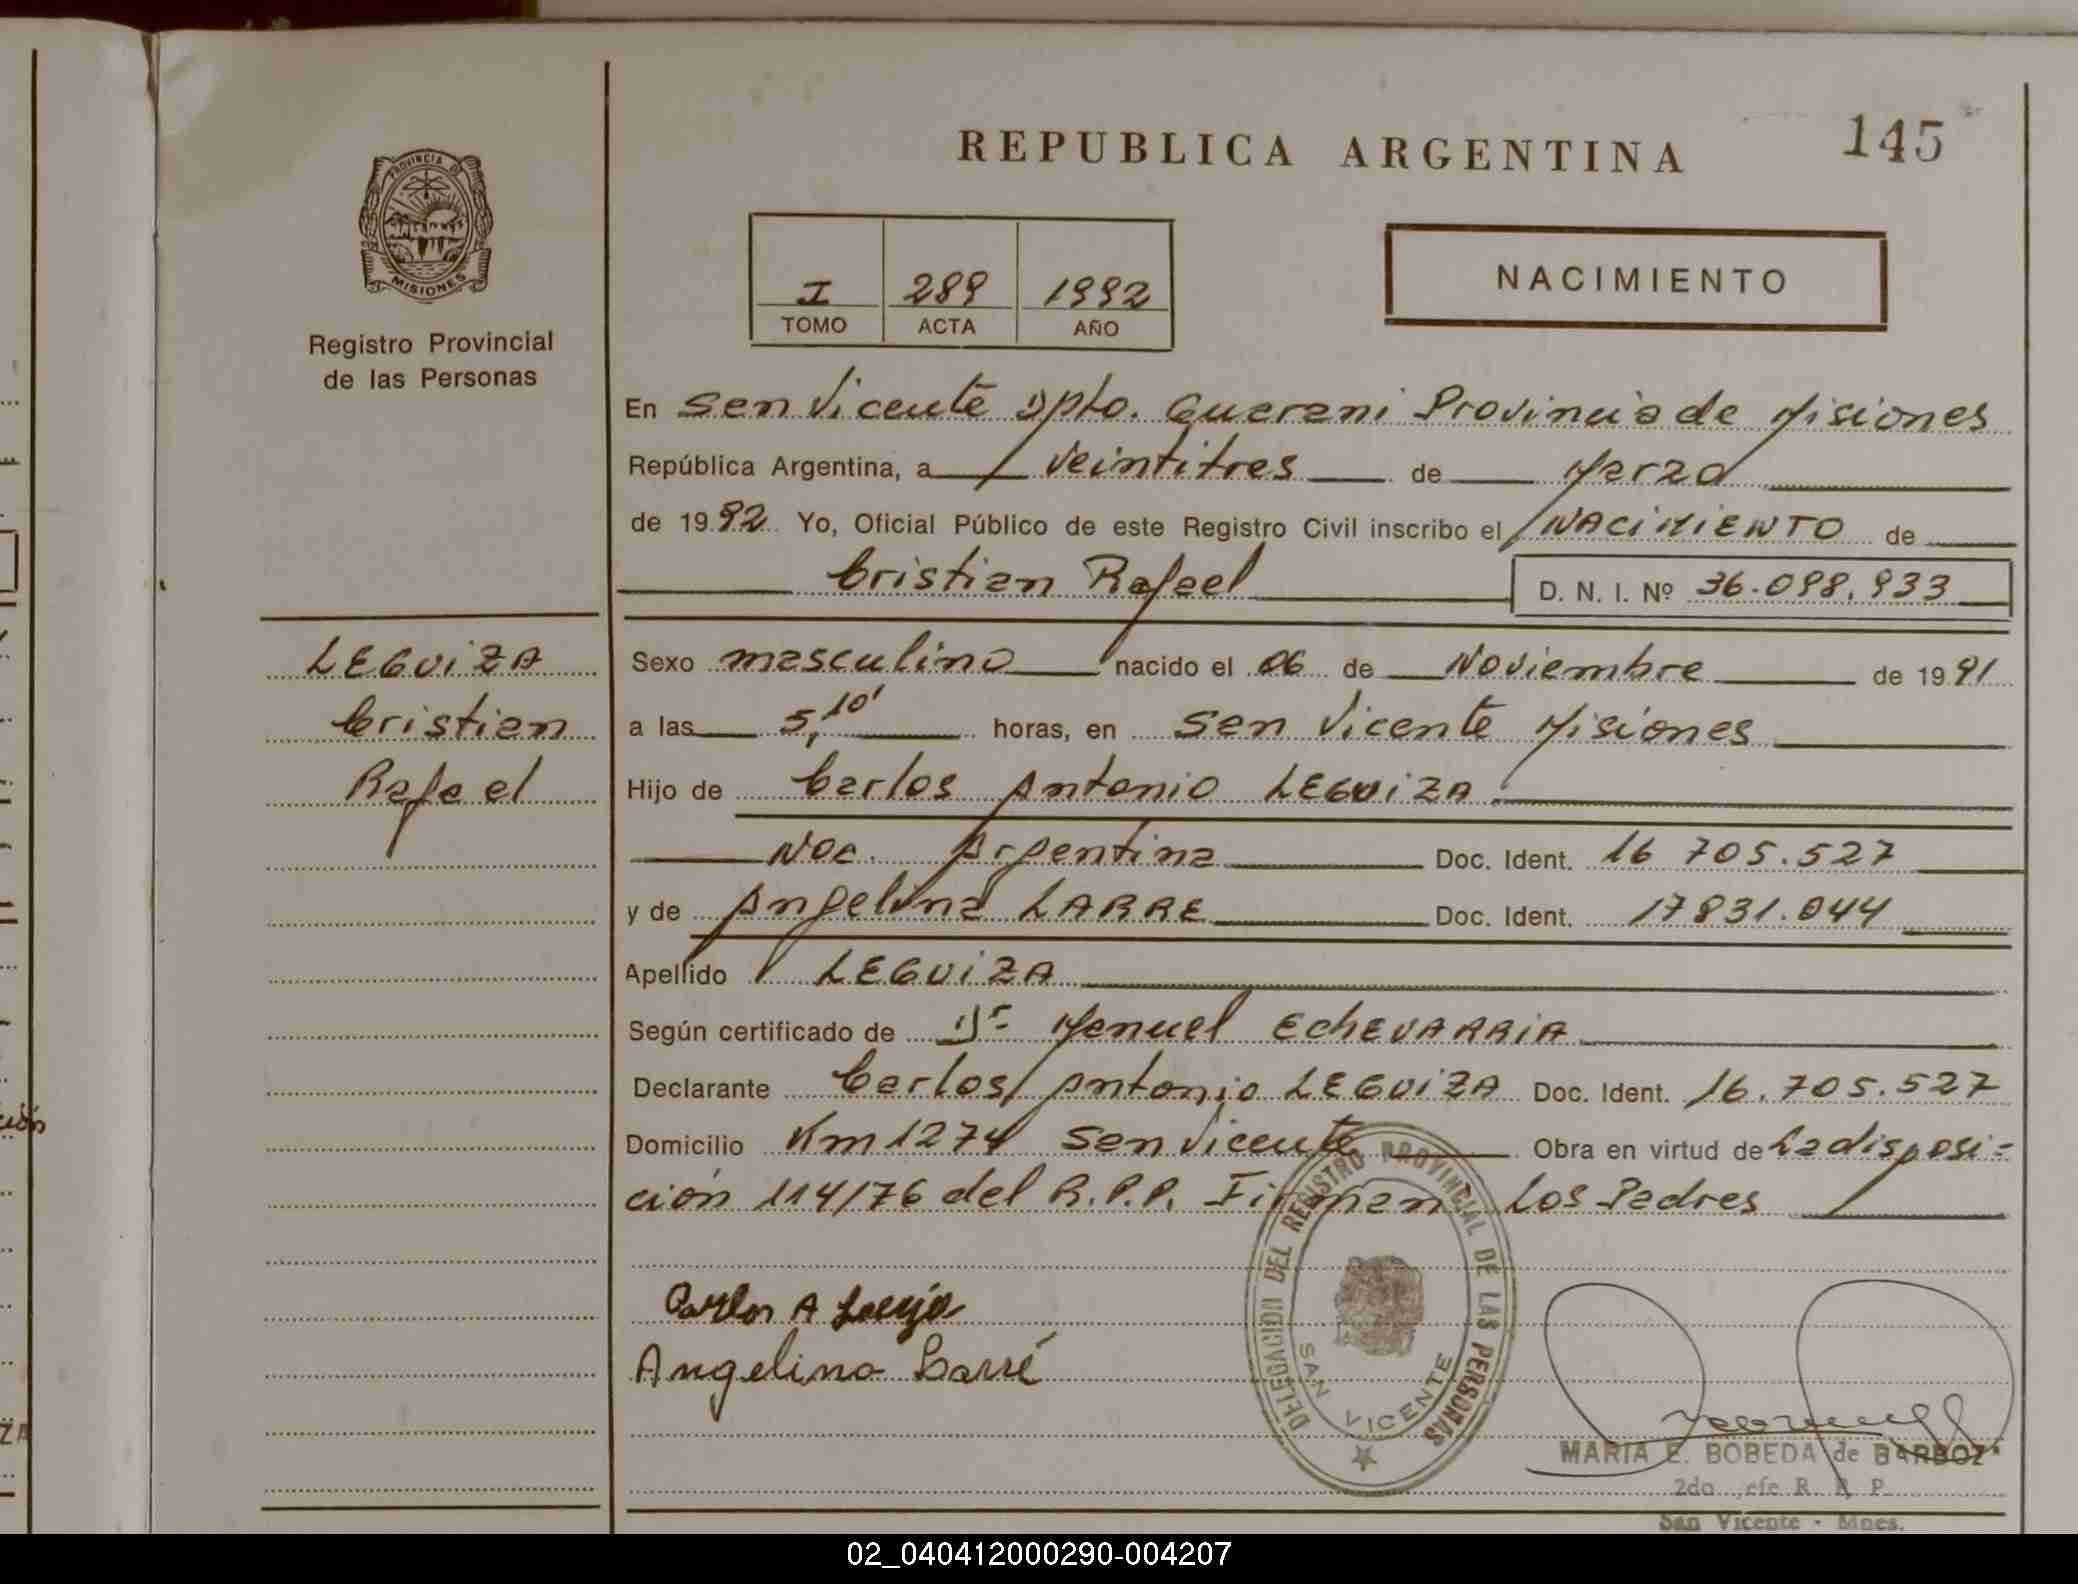 REPUBLICA ARGENTINA
145
PROVINCIA DE
MISIONES
Registro Provincial
de las Personas
I 289 1992
TOMO ACTA AÑO
NACIMIENTO
En San Vicente Dpto. Guarani Provincia de Misiones
República Argentina, a veintitres de Marzo
de 1992 Yo, Oficial Público de este Registro Civil inscribo el NACIMIENTO de
Cristian Rafael D. N. I. Nº 36.098.933
LEGUIZA
Cristian
Rafael
Sexo masculino nacido el 06 de Noviembre de 1991
a las 5,10' horas, en San Vicente Misiones
Hijo de Carlos Antonio LEGUIZA
Nac. Argentina Doc. Ident. 16 705.527
y de Angelina LARRE Doc. Ident. 17831.044
Apellido LEGUIZA
Según certificado de Dr Manuel EChEVARRiA
Declarante Carlos Antonio LEGUIZA Doc. Ident. 16.705.527
Domicilio Km 1274 San Vicente Obra en virtud de La disposi-
ción 114/76 del R.P.P. Firman Los Padres
Carlos A
Angelina Larré
DELEGACION DEL REGISTRO PROVINCIAL DE LAS PERSONAS
SAN VICENTE
MARIA E. BOBEDA de BARBOZ
2do R. P.
San Vicente - Mnes.
02_040412000290-004207